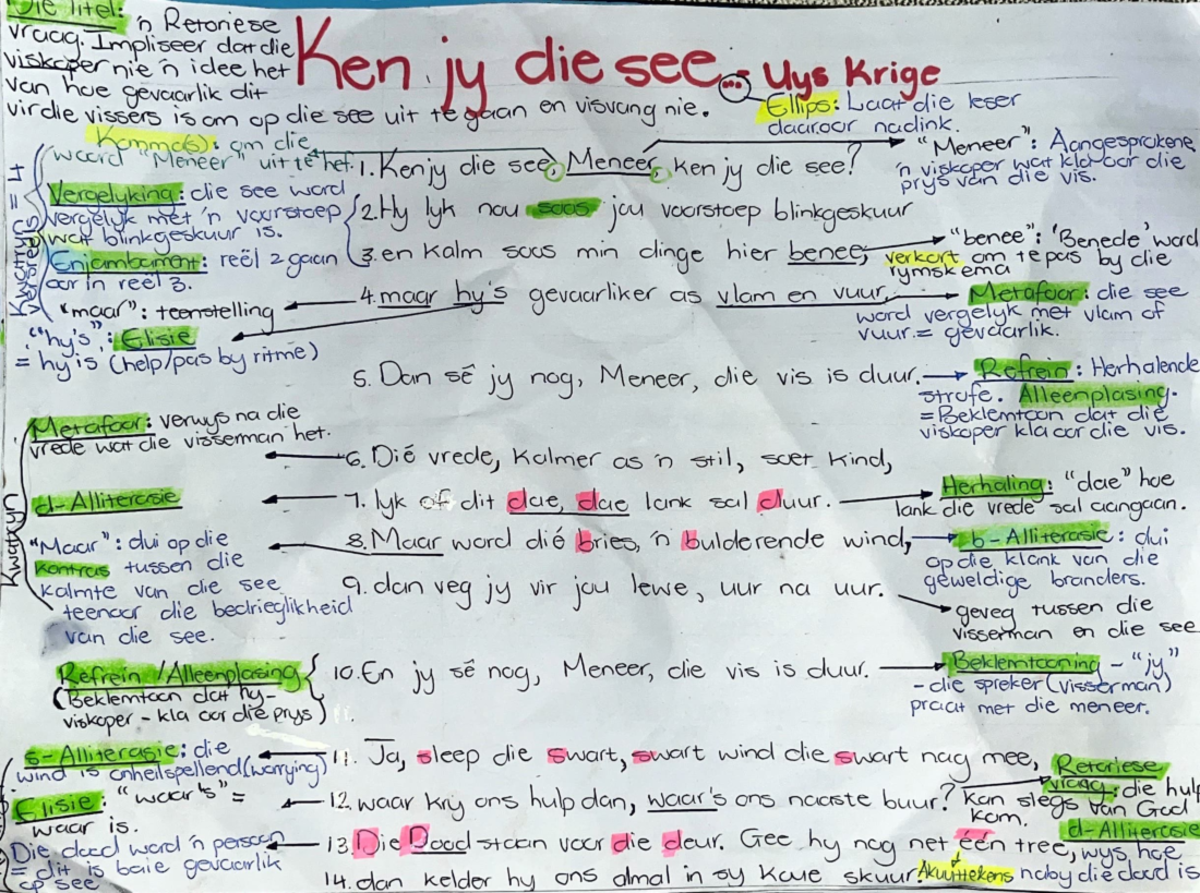 Die Titel: 'n Retoriese
vraag. Impliseer dat die
viskoper nie 'n idee het
van hoe gevaarlik dit
vir die vissers is om op die see uit te gaan en visvang nie.
Ken jy die see... Uys Krige
Ellips: Laat die leser
daaroor nadink.
Komma(s): om die
woord "Meneer" uit te het.
1. Ken jy die see, Meneer, ken jy die see?
"Meneer": Aangesprokene
'n viskoper wat kla oor die
prys van die vis.
Vergelyking: die see word
vergelyk met 'n voorstoep
wat blinkgeskuur is.
2. Hy lyk nou soos jou voorstoep blinkgeskuur
Enjambament: reël 2 gaan
oor in reël 3.
3. en kalm soos min dinge hier benee,
"benee": 'Benede' word
verkort om te pas by die
rymskema
"maar": teenstelling
4. maar hy's gevaarliker as vlam en vuur,
Metafoor: die see
word vergelyk met vlam of
vuur. = gevaarlik.
"hy's": Elisie
= hy is (help/pas by ritme)
5. Dan sê jy nog, Meneer, die vis is duur.
Refrein: Herhalende
strofe. Alleenplasing.
= Beklemtoon dat die
viskoper kla oor die vis.
Kwatryn
Metafoor: verwys na die
vrede wat die visserman het.
6. Dié vrede, kalmer as 'n stil, soet kind,
d-Alliterasie
7. lyk of dit dae, dae lank sal duur.
Herhaling: "dae" hoe
lank die vrede sal aangaan.
"Maar": dui op die
kontras tussen die
kalmte van die see
teenoor die bedrieglikheid
van die see.
8. Maar word dié bries, 'n bulderende wind,
b-Alliterasie: dui
op die klank van die
geweldige branders.
9. dan veg jy vir jou lewe, uur na uur.
geveg tussen die
visserman en die see
Refrein/Alleenplasing
(Beklemtoon dat hy-
viskoper - kla oor die prys)
10. En jy sê nog, Meneer, die vis is duur.
Beklemtoning - "jy"
- die spreker (visserman)
praat met die meneer.
11.
s-Alliterasie: die
wind is onheilspellend (worrying)
11. Ja, sleep die swart, swart wind die swart nag mee,
Retoriese
vraag: die hulp
kan slegs van God
kom.
Elisie: "waar's" =
waar is.
12. waar kry ons hulp dan, waar's ons naaste buur?
Die dood word 'n persoon
= dit is baie gevaarlik
op see
13. Die Dood staan voor die deur. Gee hy nog net één tree,
d-Alliterasie
wys hoe
naby die dood is
14. dan kelder hy ons almal in sy koue skuur.
Akuuttekens